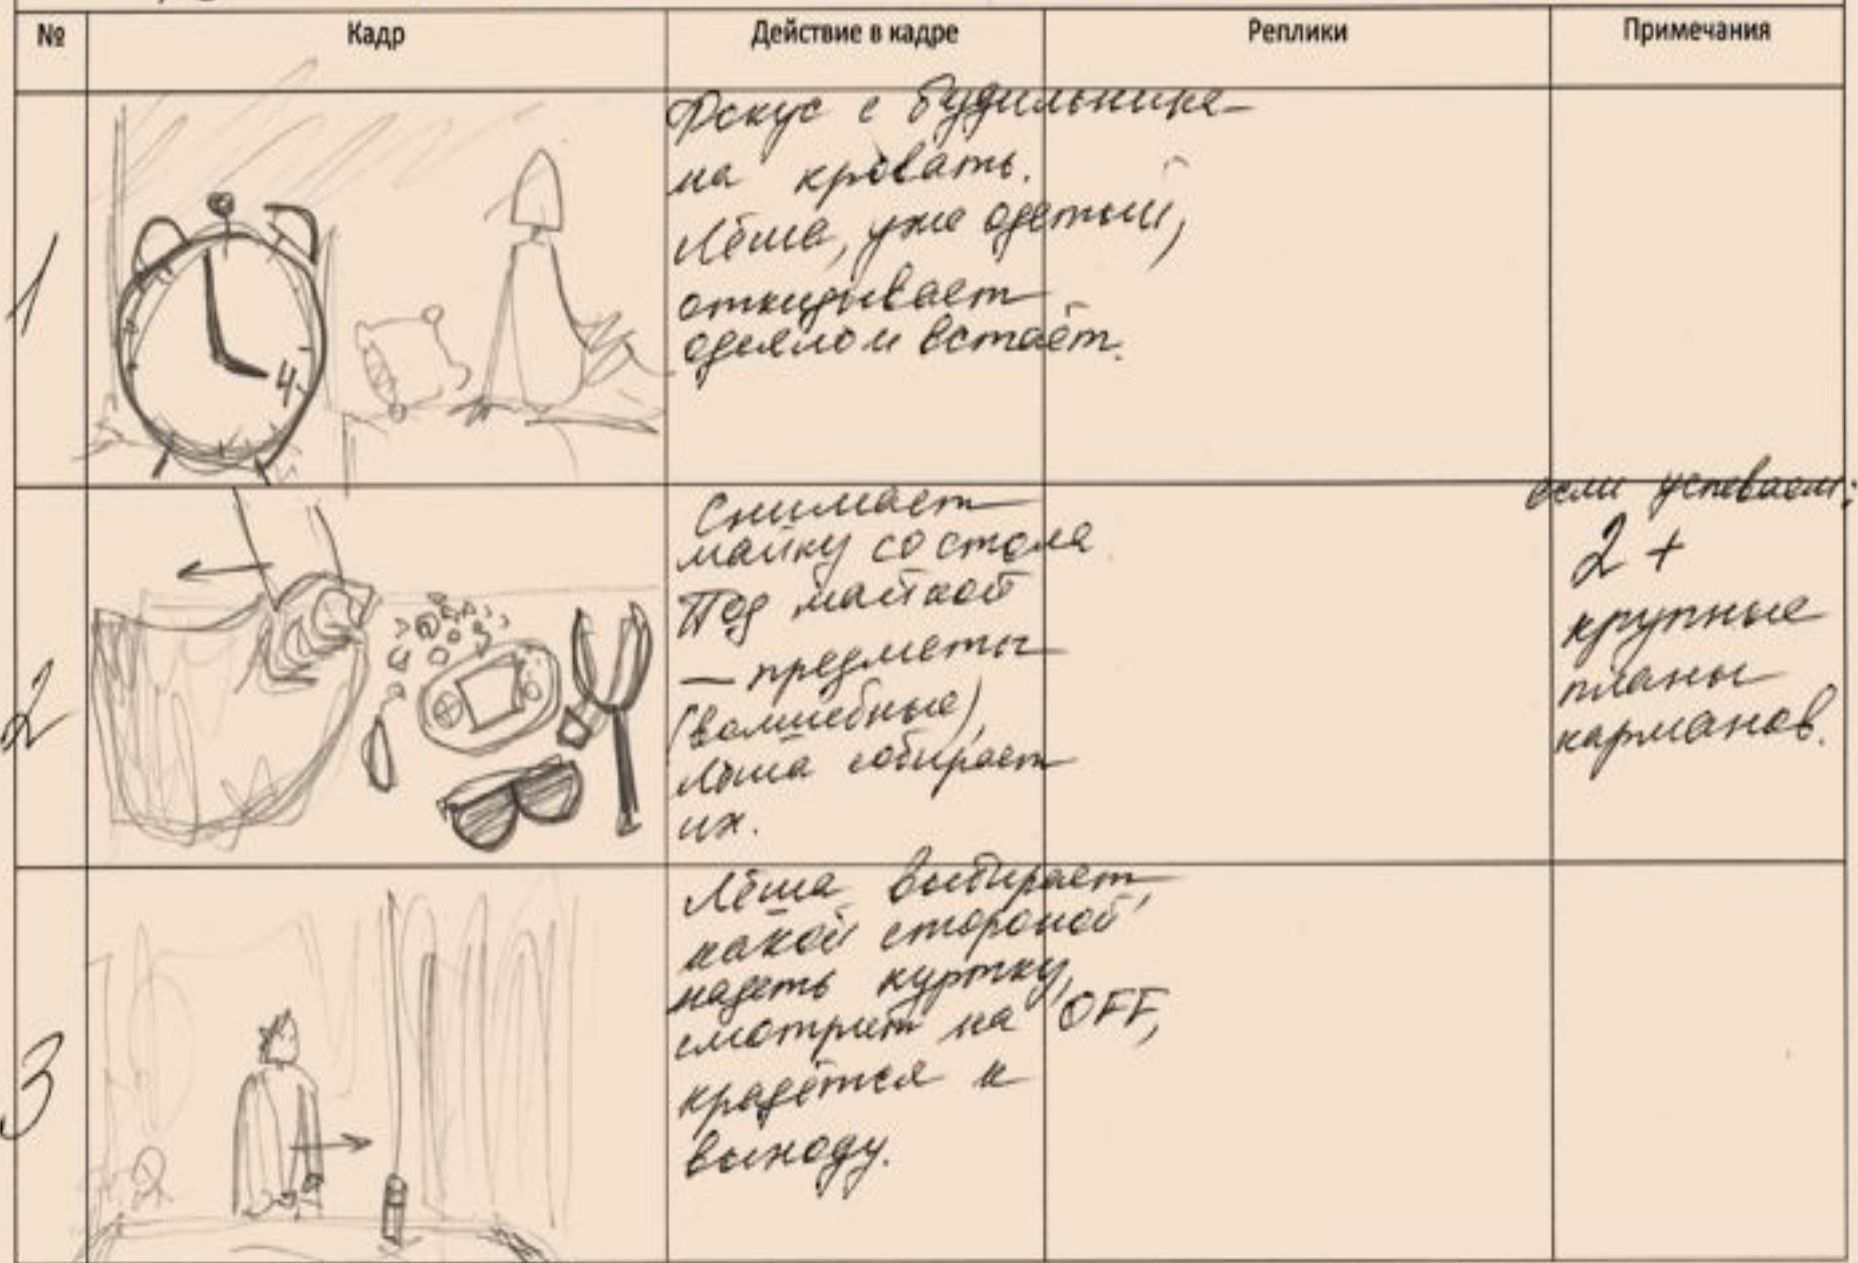 № Кадр Действие в кадре Реплики Примечания
1
4
Фокус с будильника
на кровать.
Лёша, уже одетый,
откидывает
одеяло и встаёт.
2
Снимает
майку со стола
Под майкой
— предметы
(волшебные),
Лёша собирает
их.
если успеваем:
2 +
крупные
планы
карманов.
3
Лёша выбирает,
какой стороной
надеть куртку,
смотрит на OFF,
крадётся к
выходу.